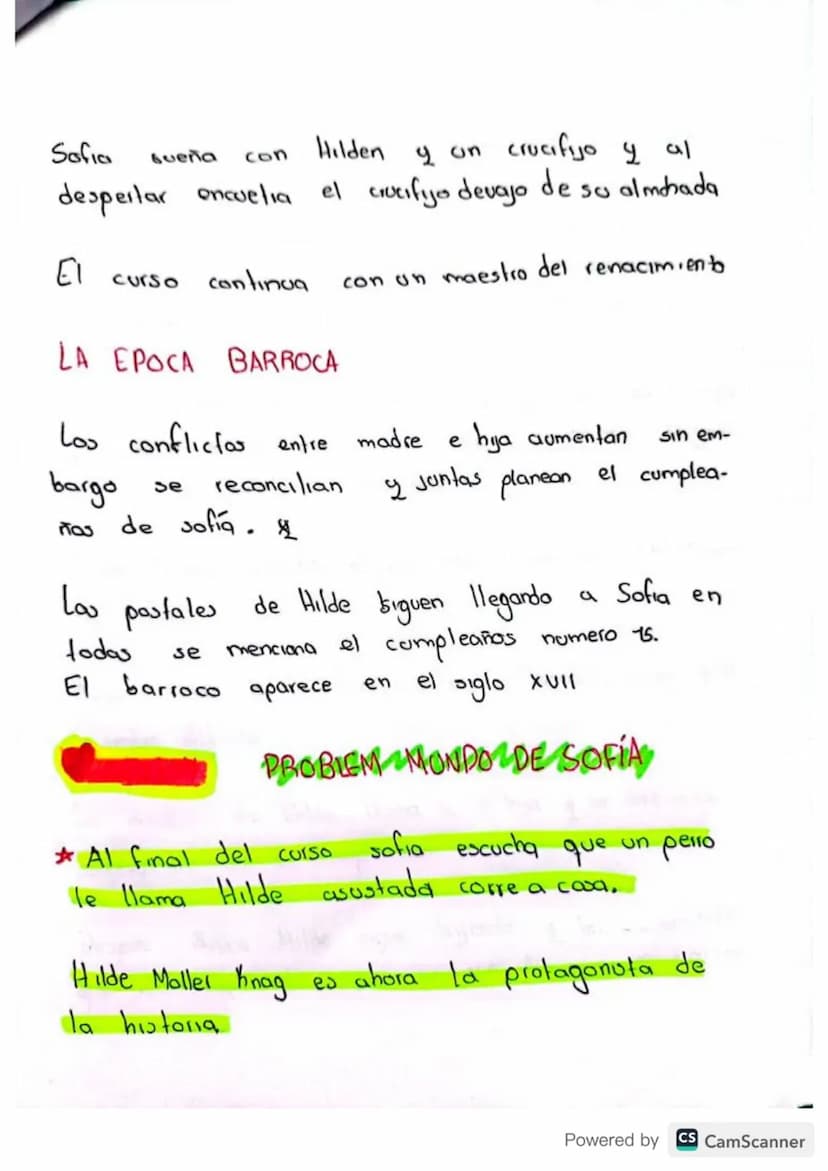 Sofia sueña con Hilden y un crucifijo y al
despertar encuetra el crucifijo devajo de su almohada
El curso continua con un maestro del renacimiento
LA EPOCA BARROCA
Los conflictos entre madre e hija aumentan sin em-
bargo se reconcilian y juntas planean el cumplea-
ños de sofía.
Las postales de Hilde siguen llegando a Sofia en
todas se menciona el cumpleaños numero 15.
El barroco aparece en el siglo XVII
PROBLEM MUNDO DE SOFÍA
* Al final del curso sofia escucha que un perro
le llama Hilde asustada corre a casa.
Hilde Moller Knag es ahora la protagonista de
la historia
Powered by CS CamScanner